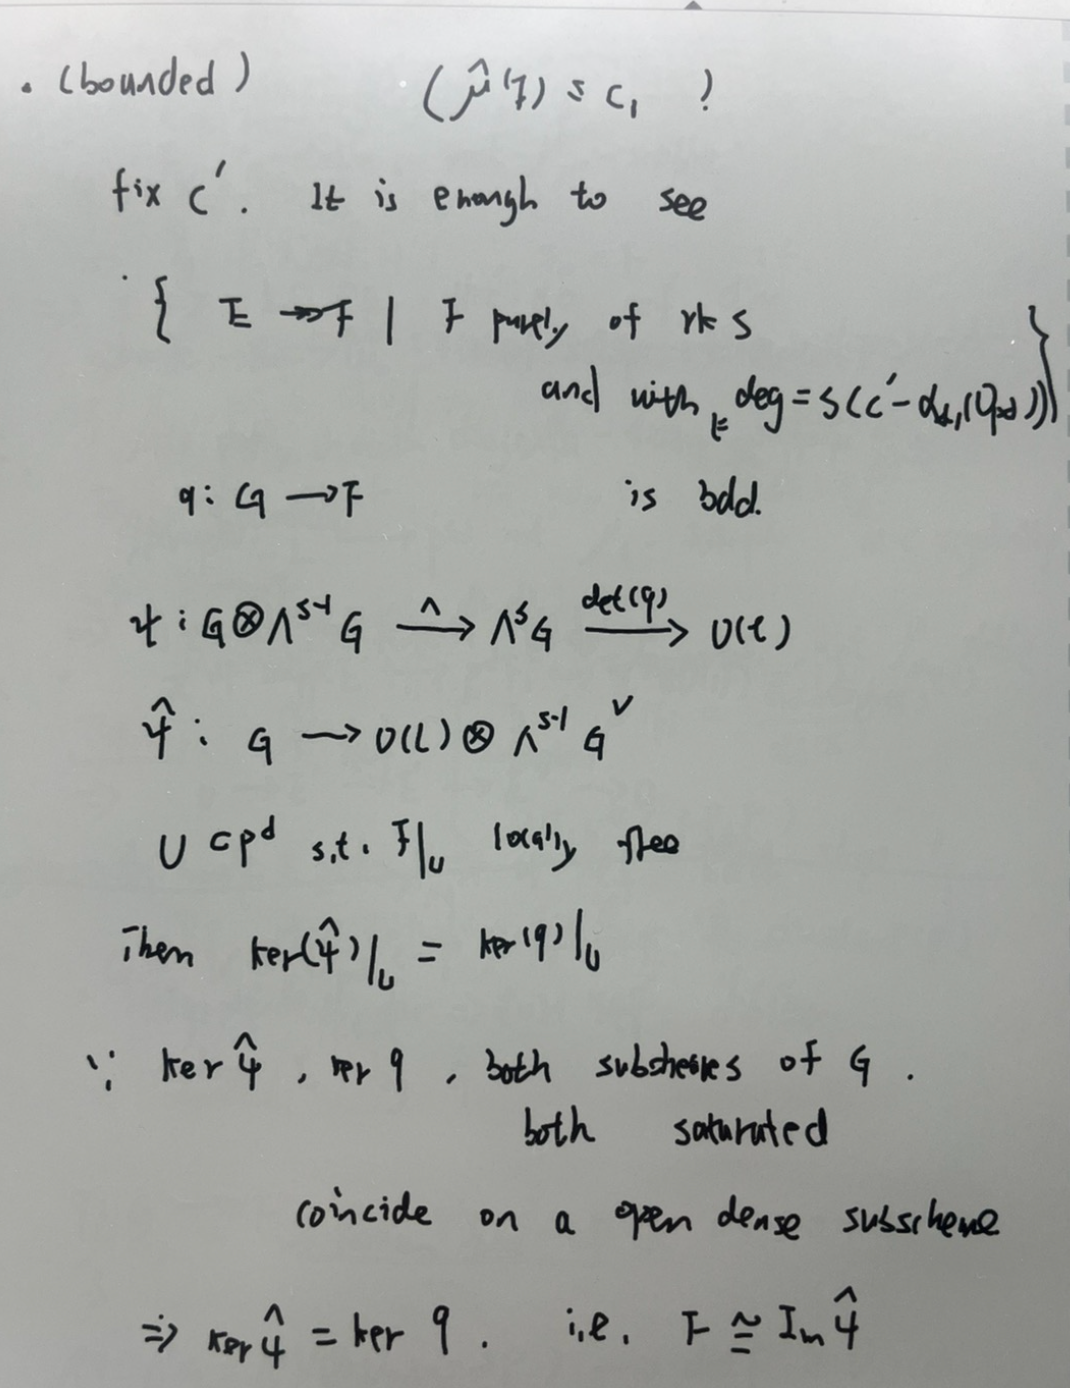 · (bounded) (μ̂(F) ≤ C₁ ?
fix C′. It is enough to see
{ E ↠ F | F purely of rk s
and with deg = s(C′ - α_{d-1}(O_{pd})) }
q: G → F is bdd.
ψ: G ⊗ Λ^{s-1} G →^{∧} Λ^s G →^{det(q)} O(ℓ)
ψ̂: G → O(ℓ) ⊗ Λ^{s-1} G^∨
U ⊂ P^d s.t. F|_U locally free
Then ker(ψ̂)|_U = ker(q)|_U
∵ ker ψ̂, ker q, both subsheaves of G.
both saturated
coincide on a open dense subscheme
⇒ ker ψ̂ = ker q. i.e. F ≅ Im ψ̂